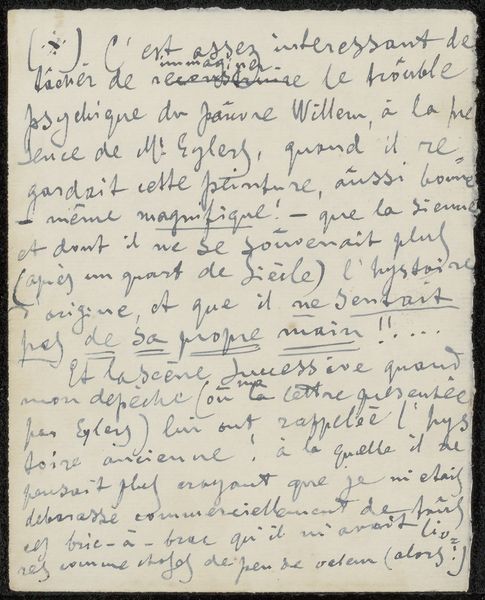 (∴) C'est assez interessant de
tâcher de immaginer le trouble
psychique du pauvre Willem, à la pre
sence de Mr. Eylers, quand il re
gardait cette peinture, aussi bonne
- même magnifique! - que la sienne
et dont il ne se souvenait plus
(après un quart de siècle) l'hystoire
d'origine, et que il ne sentait
pas de sa propre main!!....
Et la scène successive quand
mon depêche (ou la lettre presentée
par Eylers) lui ont rappelée l'hys
toire ancienne! à la quelle il ne
pensait plus croyant que je m'etais
debarassé commercialement de tous
ces bric-à-brac qu'il m'avait liv=
rés comme choses de peu de valeur (alors!)